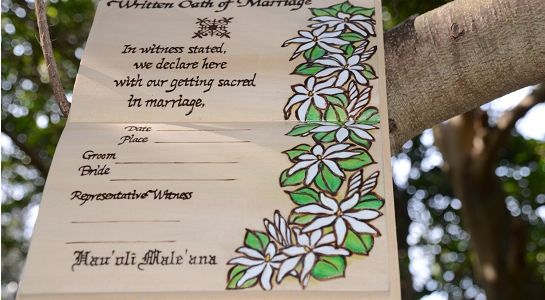 Written Oath of Marriage
In witness stated,
we declare here
with our getting sacred
in marriage,
Date
Place
Groom
Bride
Representative Witness
Hau'oli Male'ana